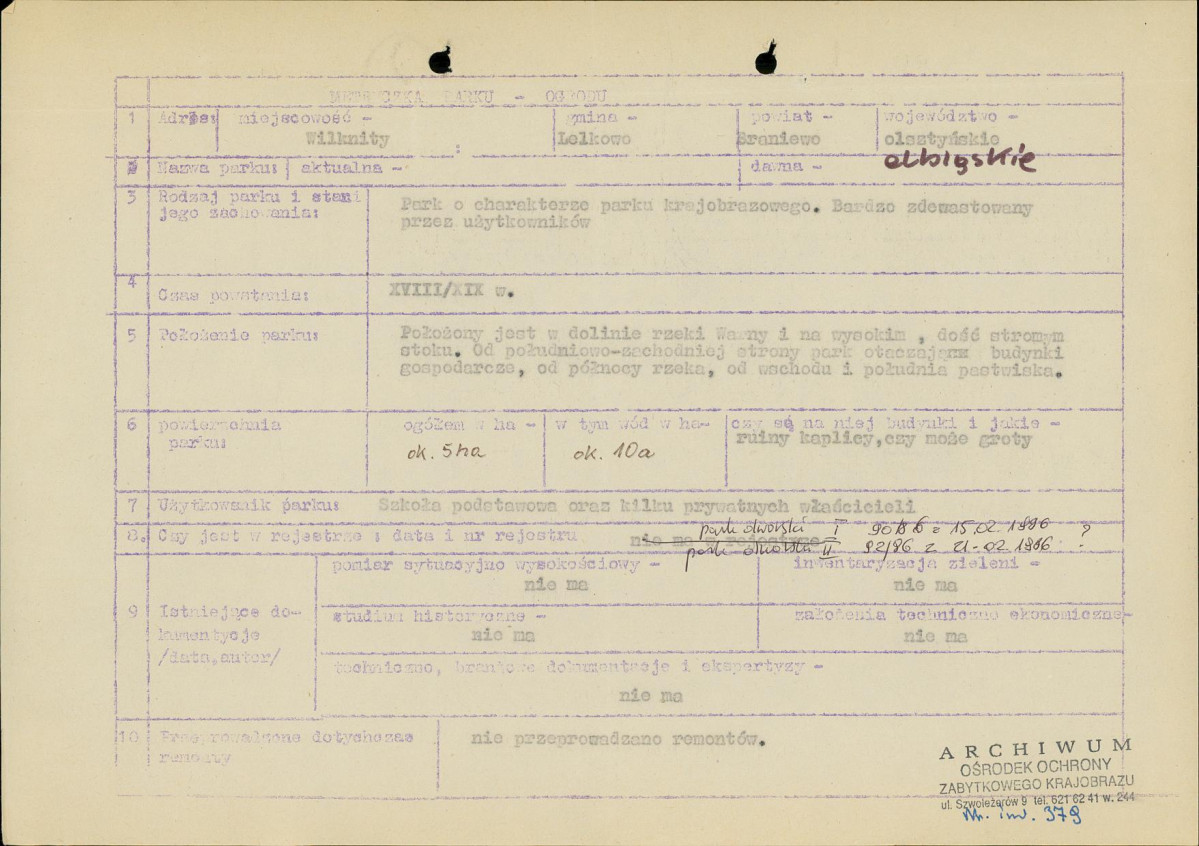 METRYCZKA PARKU - OGRODU
1 Adres: miejscowość - gmina - powiat - województwo -
Wilknity Lelkowo Braniewo olsztyńskie
elbląskie
2 Nazwa parku: aktualna - dawna -
3 Rodzaj parku i stan jego zachowania:
Park o charakterze parku krajobrazowego. Bardzo zdewastowany
przez użytkowników
4 Czas powstania: XVIII/XIX w.
5 Położenie parku: Położony jest w dolinie rzeki Warny i na wysokim , dość stromym
stoku. Od południowo-zachodniej strony park otaczają budynki
gospodarcze, od północy rzeka, od wschodu i południa pastwiska.
6 powierzchnia ogółem w ha - w tym wód w ha- czy są na niej budynki i jakie -
parku: ok. 5ha ok. 10a ruiny kaplicy,czy może groty
7 Użytkownik parku: Szkoła podstawowa oraz kilku prywatnych właścicieli
park dworski I 90/86 z 15.02 1986 ?
8. Czy jest w rejestrze : data i nr rejestru nie ma w rejestrze
park dworski II 92/86 z 21-02 1986
pomiar sytuacyjno wysokościowy - inwentaryzacja zieleni -
nie ma nie ma
9 Istniejące do- studium historyczne - założenia techniczno ekonomiczne-
kumentycje nie ma nie ma
/data,autor/ techniczne, branżowe dokumentacje i ekspertyzy -
nie ma
10 Przeprowadzone dotychczas nie przeprowadzano remontów.
remonty
ARCHIWUM
OŚRODEK OCHRONY
ZABYTKOWEGO KRAJOBRAZU
ul. Szwoleżerów 9 tel. 621 62 41 w. 244
Nr. inw. 379